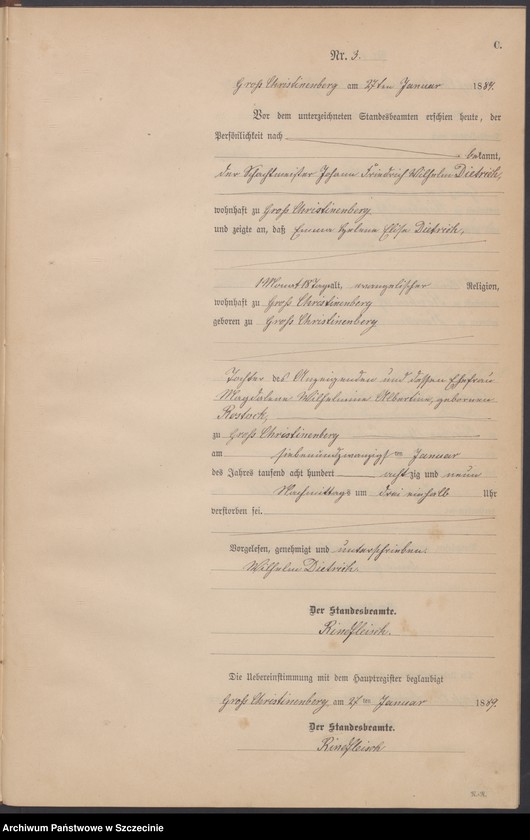 C.
Nr. 3.
Groß Christinenberg am 27ten Januar 1889.
Vor dem unterzeichneten Standesbeamten erschien heute, der
Persönlichkeit nach
bekannt,
der Schachtmeister Johann Friedrich Wilhelm Dietrich,
wohnhaft zu Groß Christinenberg
und zeigte an, daß Emma Helene Elise Dietrich,
1 Monat 18 Tage alt, evangelischer Religion,
wohnhaft zu Groß Christinenberg
geboren zu Groß Christinenberg
Tochter des Anzeigenden und dessen Ehefrau
Magdalene Wilhelmine Albertine, geborenen
Rostock,
zu Groß Christinenberg
am siebenundzwanzigsten Januar
des Jahres tausend acht hundert achtzig und neun
Nachmittags um drei einhalb Uhr
verstorben sei.
Vorgelesen, genehmigt und unterschrieben
Wilhelm Dietrich.
Der Standesbeamte.
Rindfleisch.
Die Uebereinstimmung mit dem Hauptregister beglaubigt
Groß Christinenberg am 27ten Januar 1889.
Der Standesbeamte.
Rindfleisch
Archiwum Państwowe w Szczecinie